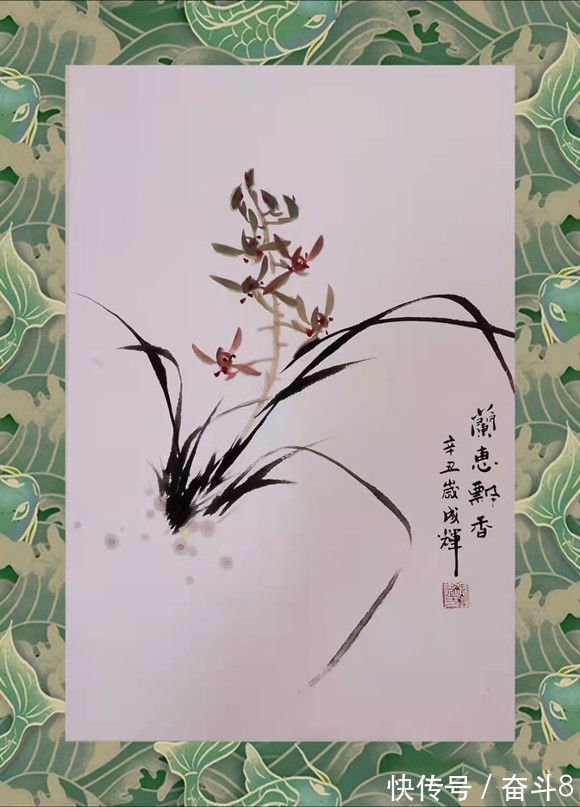 蘭惠飄香
辛丑歲成輝
快传号 / 奋斗8